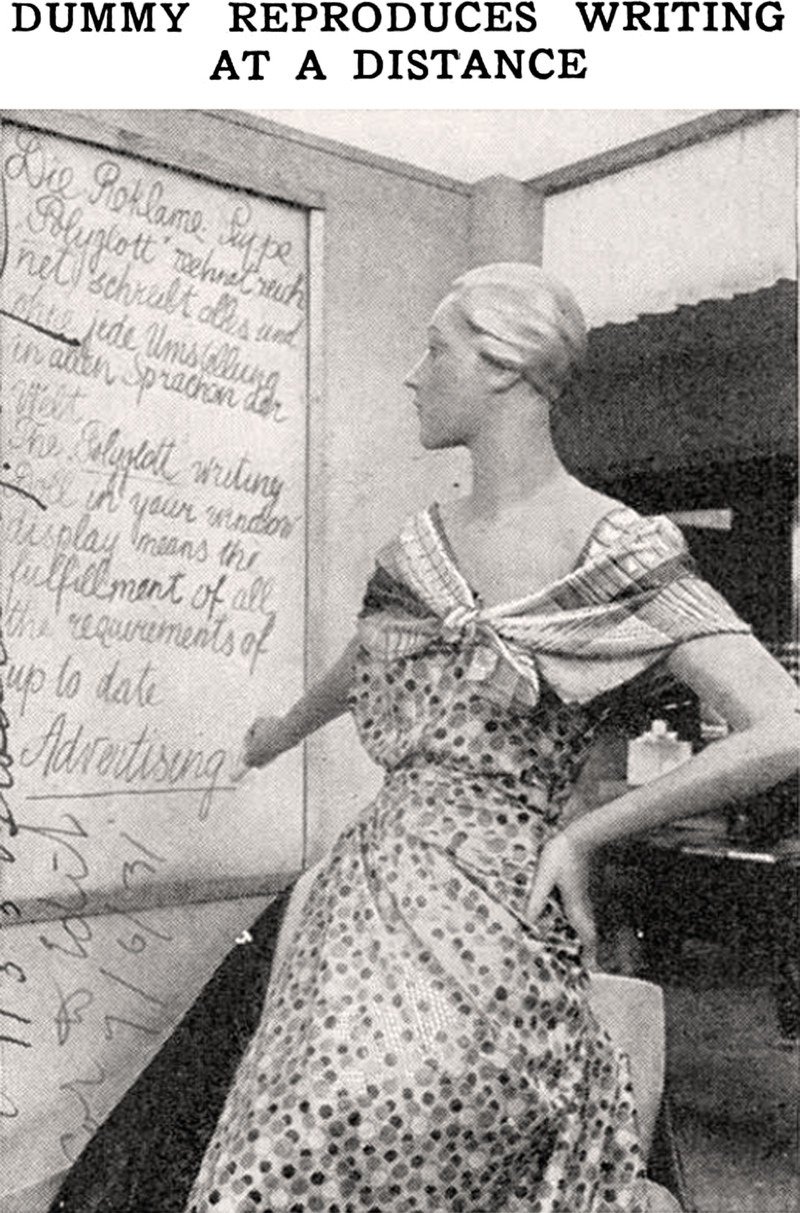 DUMMY REPRODUCES WRITING
AT A DISTANCE
Die Reklame-Puppe
"Polyglott" rechnet
net) schreibt alles und
ohne jede Umstellung
in allen Sprachen der
Welt
The "Polyglott" writing
Doll in your window
display means the
fulfillment of all
the requirements of
up to date
Advertising
7/6/31